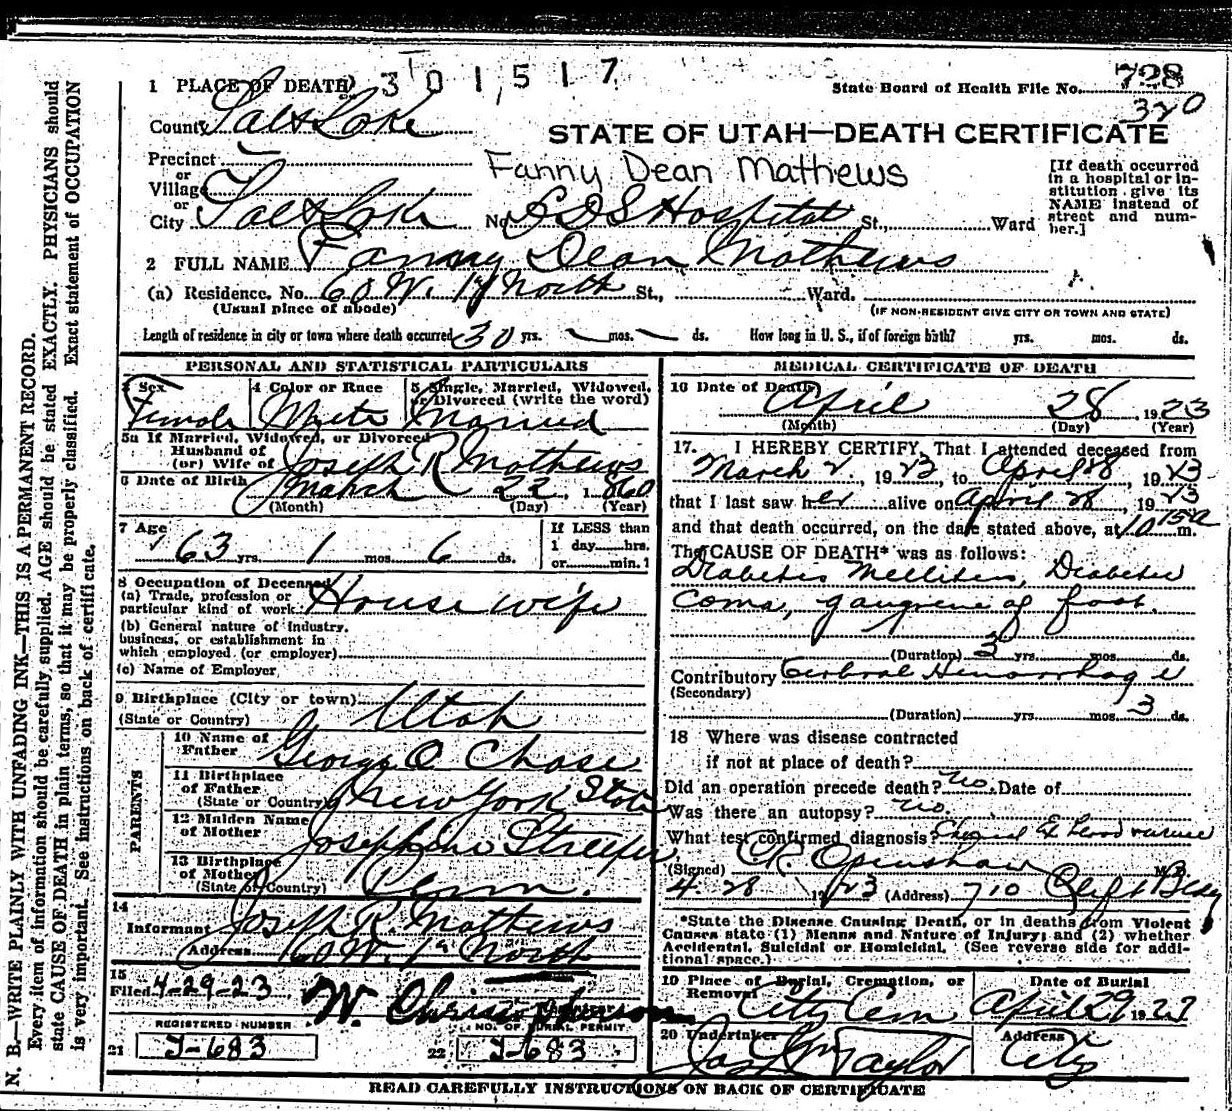 1 PLACE OF DEATH 301517
State Board of Health File No. 728
320
County Salt Lake
STATE OF UTAH—DEATH CERTIFICATE
Precinct
or
Village
Fanny Dean Mathews
[If death occurred in a hospital or institution give its NAME instead of street and number.]
or
City Salt Lake No. LDS Hospital St., Ward
2 FULL NAME Fanny Dean Mathews
(a) Residence. No. 60 W. 1st North St., Ward.
(Usual place of abode) (IF NON-RESIDENT GIVE CITY OR TOWN AND STATE)
Length of residence in city or town where death occurred 30 yrs. — mos. — ds. How long in U. S., if of foreign birth? yrs. mos. ds.
PERSONAL AND STATISTICAL PARTICULARS
3 Sex 4 Color or Race 5 Single, Married, Widowed, or Divorced (write the word)
Female White Married
5a If Married, Widowed, or Divorced
Husband of
(or) Wife of Joseph R Mathews
6 Date of Birth March 22, 1860
(Month) (Day) (Year)
7 Age 63 yrs. 1 mos. 6 ds.
If LESS than
1 day......hrs.
or......min.
8 Occupation of Deceased
(a) Trade, profession or
particular kind of work House wife
(b) General nature of industry,
business, or establishment in
which employed (or employer)
(c) Name of Employer
9 Birthplace (City or town)
(State or Country) Utah
PARENTS
10 Name of
Father George O. Chase
11 Birthplace
of Father
(State or Country) New York State
12 Maiden Name
of Mother Josephine Streeper
13 Birthplace
of Mother
(State or Country) Penn.
14
Informant Joseph R. Mathews
Address 60 W. 1st North
15
Filed 4-29-23 W. Christopherson
REGISTERED NUMBER NO. OF BURIAL PERMIT
21 J-683 22 J-683
MEDICAL CERTIFICATE OF DEATH
16 Date of Death April 28, 1923
(Month) (Day) (Year)
17. I HEREBY CERTIFY, That I attended deceased from
March 2, 1923, to April 28, 1923
that I last saw her alive on April 28, 1923
and that death occurred, on the date stated above, at 10 15 a m.
The CAUSE OF DEATH* was as follows:
Diabetes Mellitus, Diabetic
Coma, gangrene of foot.
(Duration) 3 yrs. mos. ds.
Contributory Cerebral Hemorrhage
(Secondary)
(Duration) yrs. mos. 3 ds.
18 Where was disease contracted
if not at place of death?
Did an operation precede death? no. Date of
Was there an autopsy? no
What test confirmed diagnosis?
(Signed) Openshaw M.D.
4-28 1923 (Address) 710 Clift Bldg
*State the Disease Causing Death, or in deaths from Violent
Causes state (1) Means and Nature of Injury; and (2) whether
Accidental, Suicidal or Homicidal. (See reverse side for addi-
tional space.)
19 Place of Burial, Cremation, or Removal Date of Burial
City Cem April 29 1923
20 Undertaker Address
Taylor City
READ CAREFULLY INSTRUCTIONS ON BACK OF CERTIFICATE
N. B.—WRITE PLAINLY WITH UNFADING INK—THIS IS A PERMANENT RECORD.
Every item of information should be carefully supplied. AGE should be stated EXACTLY. PHYSICIANS should
state CAUSE OF DEATH in plain terms, so that it may be properly classified. Exact statement of OCCUPATION
is very important. See instructions on back of certificate.